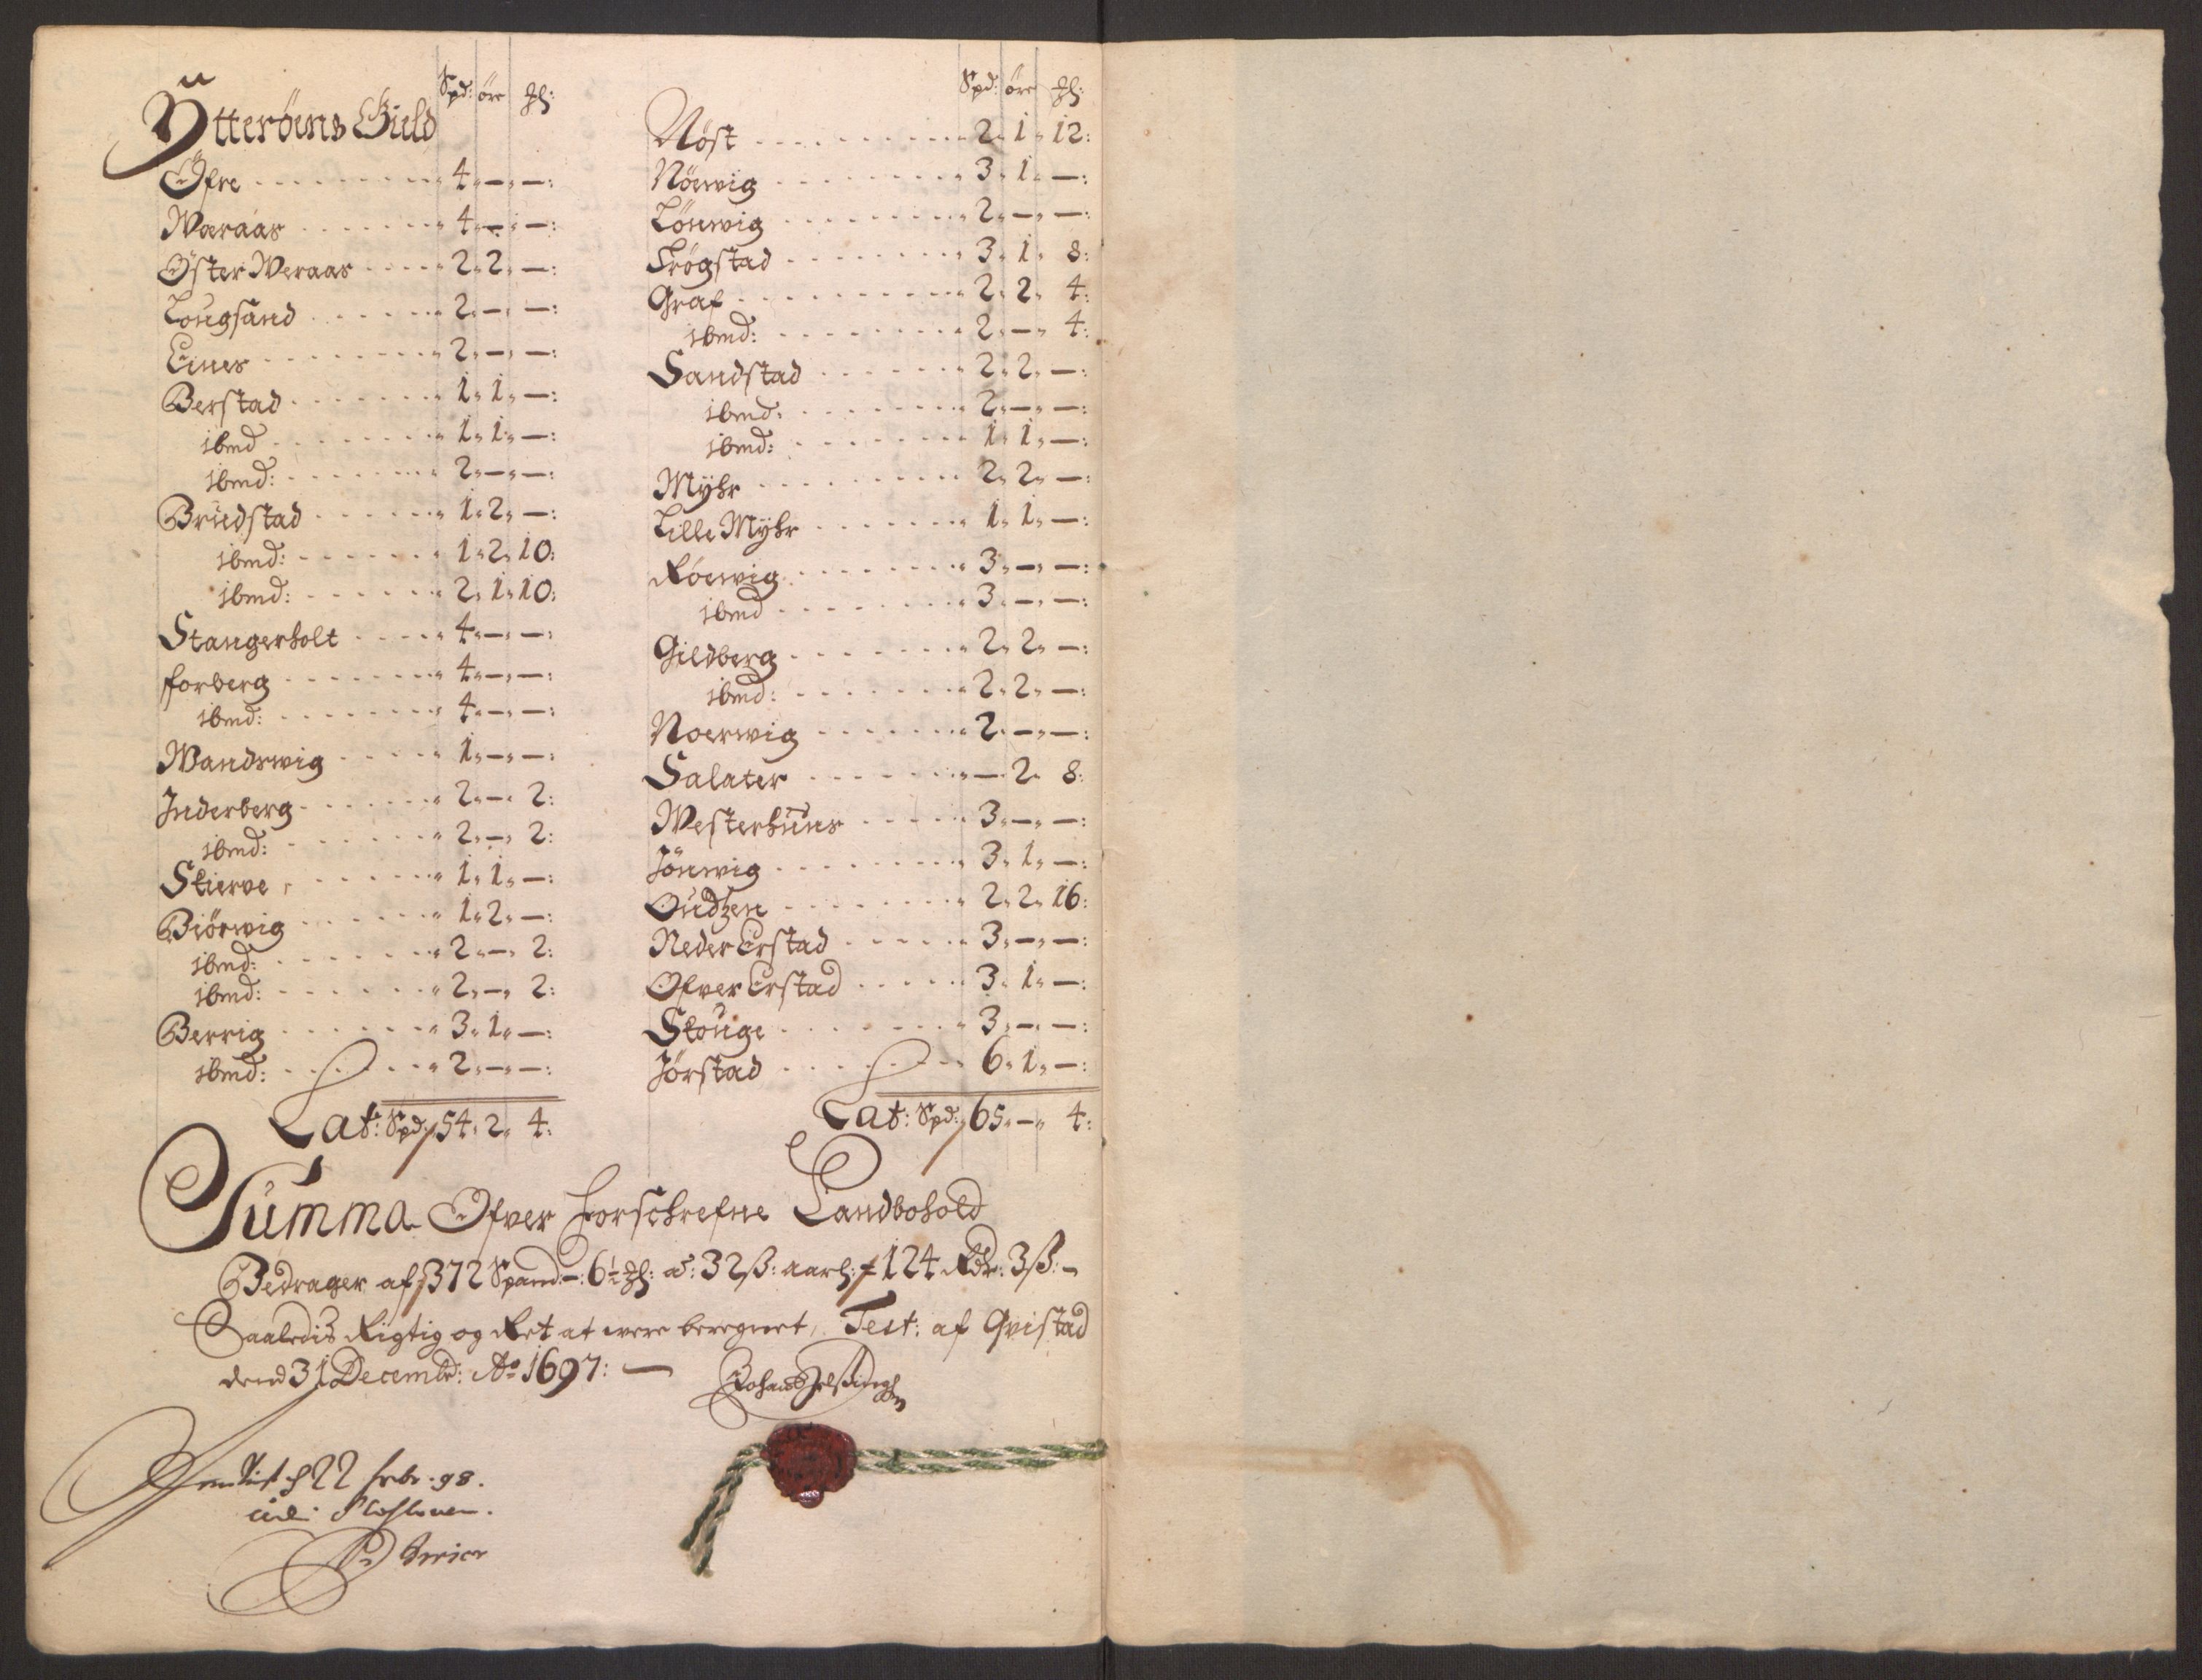 Ytterøens Gield
Spd: öre ℔:
Øfre 4 " — " — :
Weraas 4 " — " — :
Øster Weraas 2 " 2 " — :
Lougsand 2 " — " — :
Eines 2 " — " — :
Berstad 1 " 1 " — :
ibmd 1 " 1 " — :
ibmd: 2 " — " — :
Brustad 1 " 2 " — :
ibmd: 1 " 2 " 10 :
ibmd: 2 " 1 " 10 :
Stangerholt 4 " — " — :
forberg 4 " — " — :
ibmd: 4 " — " — :
Wandswig 1 " — " — :
Inderberg 2 " — " 2 :
ibmd: 2 " — " 2 :
Skierve 1 " 1 " — :
Biörwig 1 " 2 " — :
ibmd: 2 " — " 2 :
ibmd: 2 " — " 2 :
Berrig 3 " 1 " — :
ibmd: 2 " — " — :
Lat: Spd: 54 " 2 " 4 :
Spd: öre ℔:
Nöst 2 " 1 " 12 :
Nörwig 3 " 1 " — :
Lönwig 2 " — " — :
Frögstad 3 " 1 " 8 :
Graf 2 " 2 " 4 :
ibmd: 2 " — " 4 :
Sandstad 2 " 2 " — :
ibmd: 2 " — " — :
ibmd: 1 " 1 " — :
Myhr 2 " 2 " — :
Lille Myhr 1 " 1 " — :
Röewig 3 " — " — :
ibmd 3 " — " — :
Gildberg 2 " 2 " — :
ibmd: 2 " 2 " — :
Noerwig 2 " — " — :
Salater — " 2 " 8 :
Westerhuus 3 " — " — :
Jönwig 3 " 1 " — :
Oudzen 2 " 2 " 16 :
Neder Erstad 3 " — " — :
Ofver Erstad 3 " 1 " — :
Skouge 3 " — " — :
Jörstad 6 " 1 " — :
Lat: Spd: 65 " — " 4 :
Summa Ofver Forschrefne Landbohold
Bedrager af 372 Spand — : 6½ ℔: a: 32 ß: aarl: 124 Rdr: 3 ß: —
Saaledis Rigtig og Ret at were beregnet, Test: af Qvistad
dend 31 Decembr: Ao 1697: —
Johan
22 febr: 98.